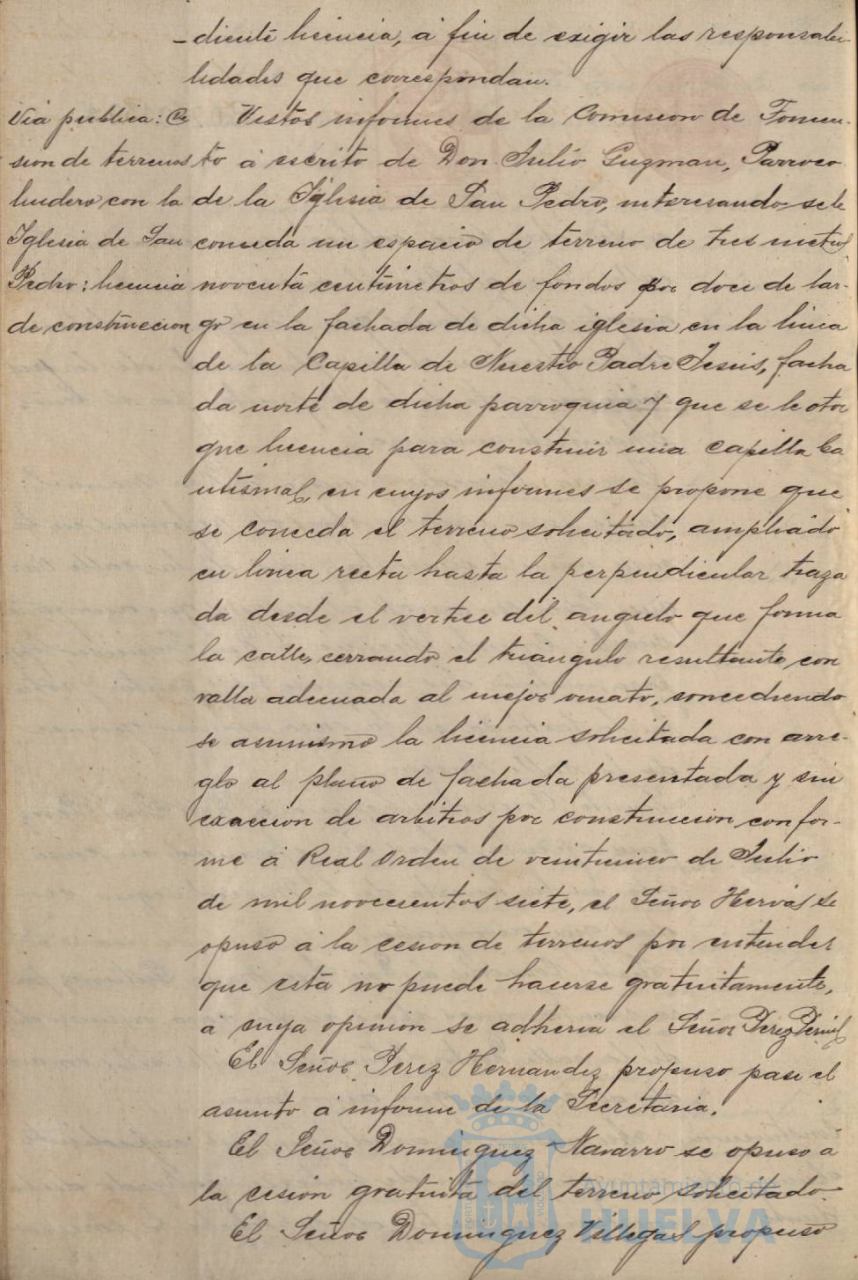 -diente licencia, á fin de exigir las responsabi-
lidades que correspondan.
Via publica: Ce
sion de terrenos
lindero con la
Iglesia de San
Pedro: licencia
de construccion
Vistos informes de la Comision de Fomen-
to á escrito de Don Julio Guzman, Parroco
de la Iglesia de San Pedro, interesando se le
conceda un espacio de terreno de tres metros
noventa centimetros de fondos por doce de lar-
go en la fachada de dicha iglesia en la linea
de la Capilla de Nuestro Padre Jesus, facha
da norte de dicha parroquia y que se le otor
gue licencia para construir una capilla ba
utismal, en cuyos informes se propone que
se conceda el terreno solicitado, ampliado
en linea recta hasta la perpendicular traza
da desde el vertice del angulo que forma
la calle, cerrando el triángulo resultante con
valla adecuada al mejor ornato, concediendo
se asimismo la licencia solicitada con arre-
glo al plano de fachada presentada y sin
exaccion de arbitros por construccion confor-
me á Real Orden de veinticinco de Julio
de mil novecientos siete, el Señor Hervás se
opuso á la cesion de terrenos por entender
que esta no puede hacerse gratuitamente,
á cuya opinion se adheria el Señor Perez
El Señor Perez Hernandez propuso pase el
asunto á informe de la Secretaria.
El Señor Dominguez Navarro se opuso á
la cesión gratuita del terreno solicitado.
El Señor Dominguez Villegas propuso
Ayuntamiento de
HUELVA